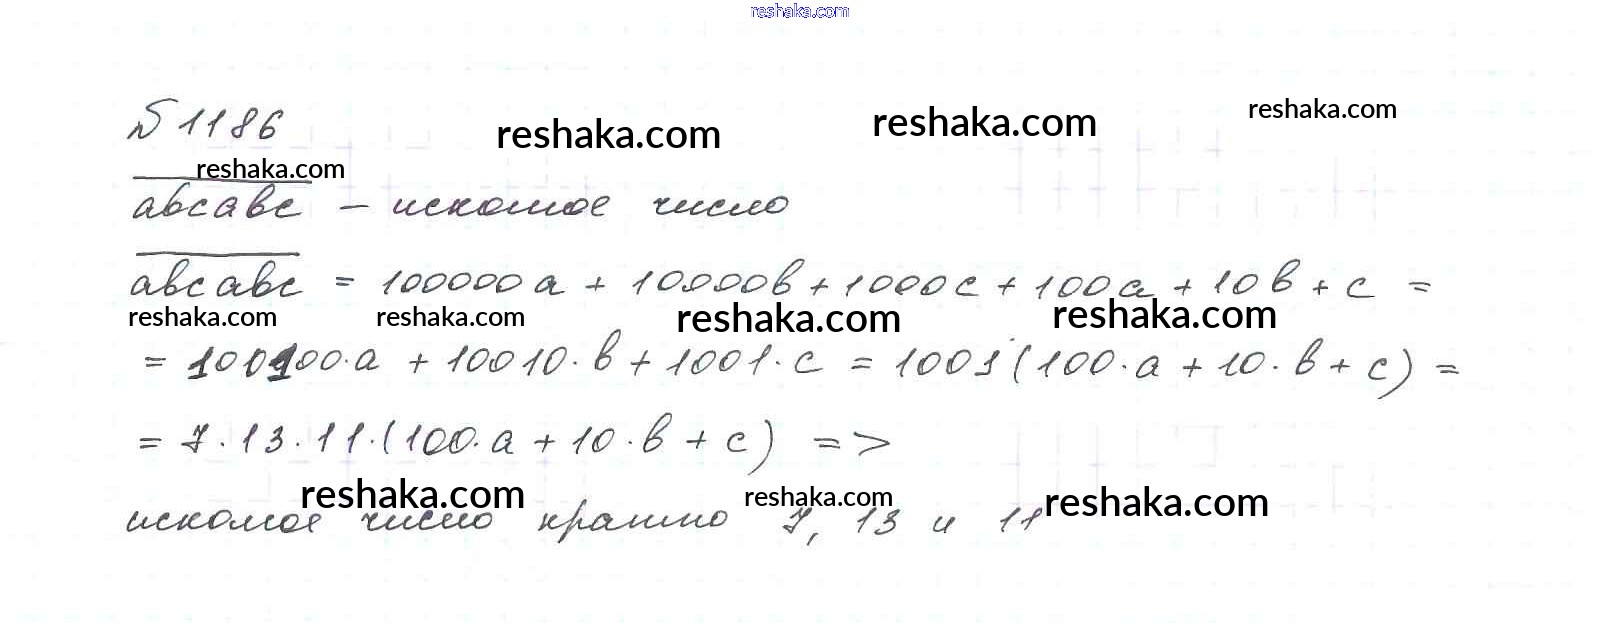 reshaka.com
№ 1186 reshaka.com reshaka.com reshaka.com
reshaka.com
abcabc – искомое число
abcabc = 100000a + 10000b + 1000c + 100a + 10b + c =
reshaka.com reshaka.com reshaka.com reshaka.com
= 100100·a + 10010·b + 1001·c = 1001(100·a + 10·b + c) =
= 7·13·11·(100·a + 10·b + c) =>
reshaka.com reshaka.com reshaka.com
искомое число кратно 7, 13 и 11